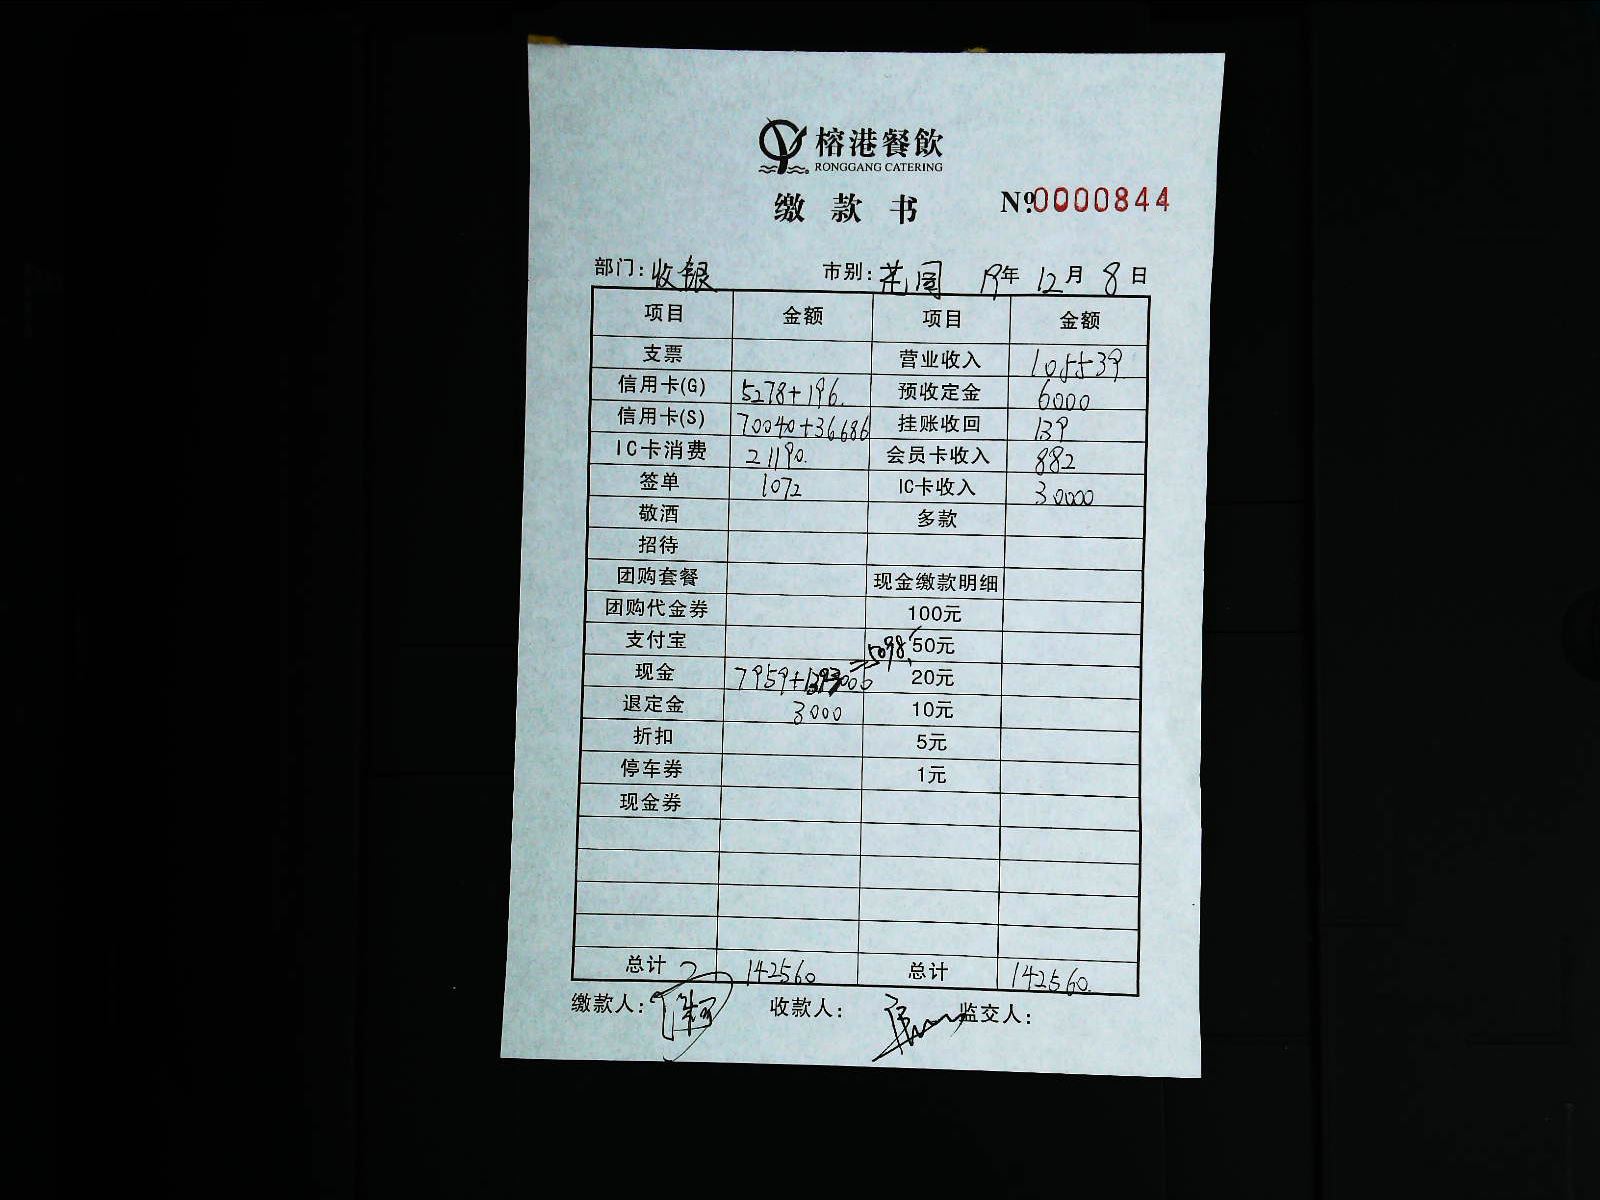 榕港餐飲
RONGGANG CATERING
缴款书 №0000844
部门:收银 市别:花园 19年12月8日
项目 金额 项目 金额
支票 营业收入 105539
信用卡(G) 5278+196. 预收定金 6000
信用卡(S) 70040+36686 挂账收回 139
IC卡消费 21190. 会员卡收入 882
签单 1072 IC卡收入 30000
敬酒 多款
招待
团购套餐 现金缴款明细
团购代金券 100元
支付宝 50元
现金 7959+ 20元
退定金 3000 10元
折扣 5元
停车券 1元
现金券
总计 142560 总计 142560.
缴款人: 收款人: 监交人: